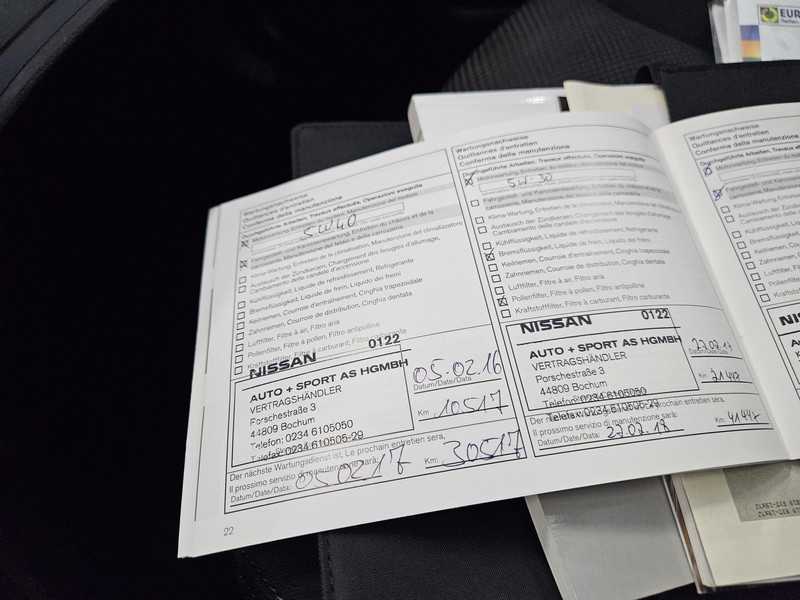 Wartungsnachweise
Quittances d'entretien
Conferma della manutenzione
Durchgeführte Arbeiten, Travaux effectués, Operazioni eseguite
Motorwartung, Entretien du moteur, Manutenzione del motore
5W40
Fahrgestell- und Karosseriewartung, Entretien du châssis et de la
carrosserie, Manutenzione del telaio e della carrozzeria
Klima-Wartung, Entretien de la climatisation, Manutenzione del climatizzatore
Austausch der Zündkerzen, Changement des bougies d'allumage,
Cambiamento delle candele d'accensione
Kühlflüssigkeit, Liquide de refroidissement, Refrigerante
Bremsflüssigkeit, Liquide de frein, Liquido dei freni
Keilriemen, Courroie d'entraînement, Cinghia di trasmissione
Zahnriemen, Courroie de distribution, Cinghia dentata
Luftfilter, Filtre à air, Filtro aria
Pollenfilter, Filtre à pollen, Filtro antipolline
Kraftstofffilter, Filtre à carburant, Filtro carburante
NISSAN 0122
AUTO + SPORT AS HGMBH
VERTRAGSHÄNDLER
Porschestraße 3
44809 Bochum
Telefon: 0234 6105050
Telefax: 0234 610505-29
05.02.16
Datum/Date/Data
Km 10517
Der nächste Wartungsdienst ist, Le prochain entretien sera,
Il prossimo servizio di manutenzione sarà:
Datum/Date/Data: 050217 Km: 30517
22
Wartungsnachweise
Quittances d'entretien
Conferma della manutenzione
Durchgeführte Arbeiten, Travaux effectués, Operazioni eseguite
Motorwartung, Entretien du moteur, Manutenzione del motore
5W-30
Fahrgestell- und Karosseriewartung, Entretien du châssis et de la
carrosserie, Manutenzione del telaio e della carrozzeria
Klima-Wartung, Entretien de la climatisation, Manutenzione del climatizzatore
Austausch der Zündkerzen, Changement des bougies d'allumage,
Cambiamento delle candele d'accensione
Kühlflüssigkeit, Liquide de refroidissement, Refrigerante
Bremsflüssigkeit, Liquide de frein, Liquido dei freni
Keilriemen, Courroie d'entraînement, Cinghia di trasmissione
Zahnriemen, Courroie de distribution, Cinghia dentata
Luftfilter, Filtre à air, Filtro aria
Pollenfilter, Filtre à pollen, Filtro antipolline
Kraftstofffilter, Filtre à carburant, Filtro carburante
NISSAN 0122
AUTO + SPORT AS HGMBH
VERTRAGSHÄNDLER
Porschestraße 3
44809 Bochum
Telefon: 0234 6105050
Telefax: 0234 610505-29
Datum/Date/Data
Km
prochain entretien sera,
Il prossimo servizio di manutenzione sarà:
Datum/Date/Data: 27.02.18 Km: 41447
Wartungsnachweise
Quittances d'entretien
Conferma della manutenzione
Durchgeführte Arbeiten
Motorwartung
Fahrgestell- und
carrosserie
Klima-Wartung
Austausch der
Cambiamento
Kühlflüssigkeit
Bremsflüssigkeit
Keilriemen
Zahnriemen
Luftfilter
Pollenfilter
Kraftstofffilter
EUR